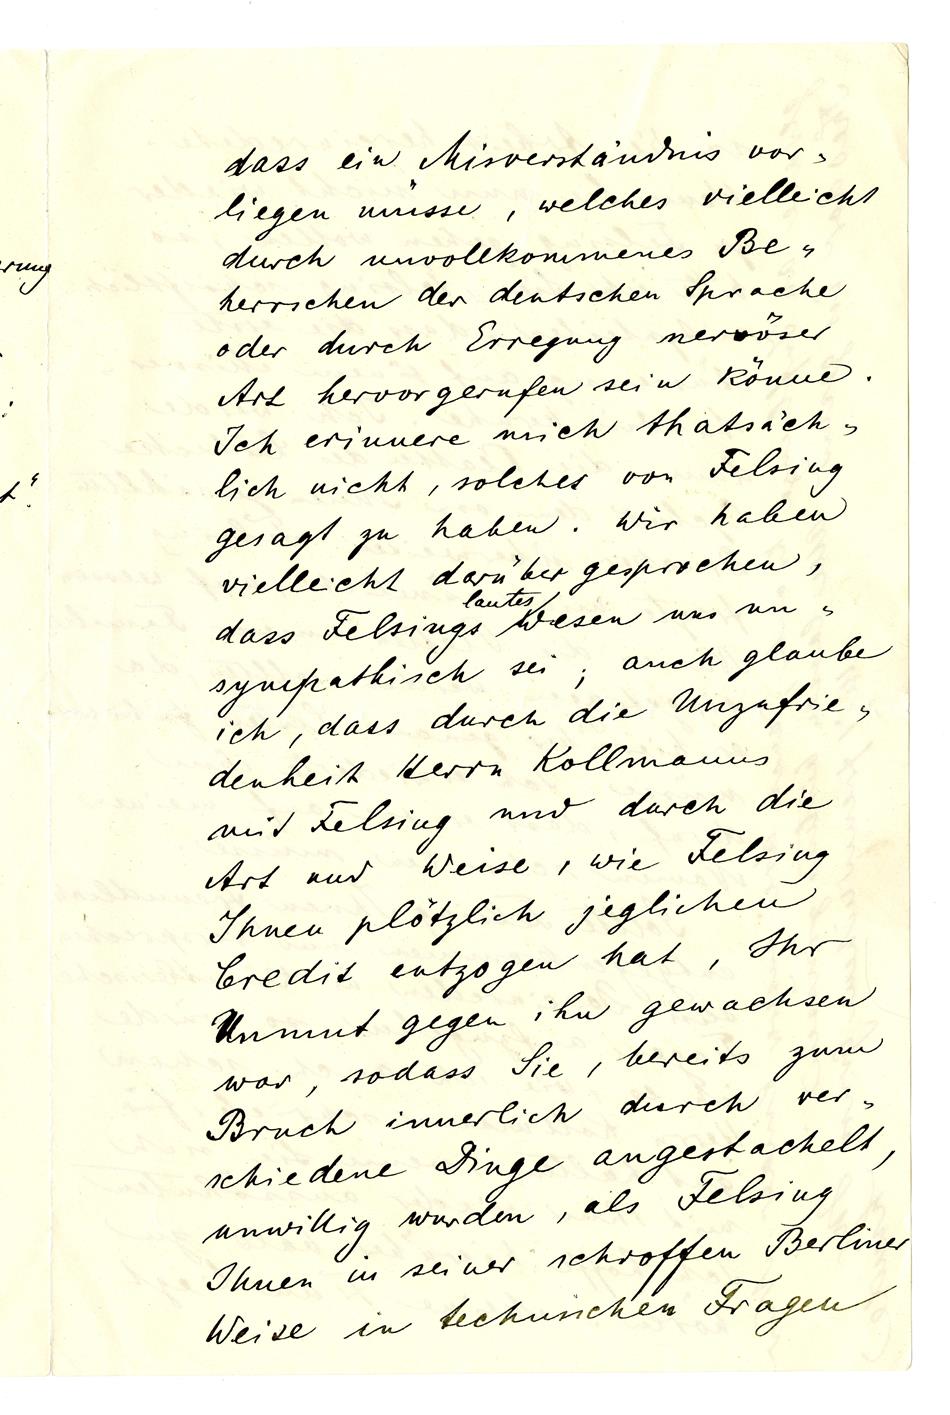 dass ein Misverständnis vor-
liegen müsse, welches vielleicht
durch unvollkommenes Be-
herrschen der deutschen Sprache
oder durch Erregung nervöser
Art hervorgerufen sein könne.
Ich erinnere mich thatsäch-
lich nicht, solches von Felsing
gesagt zu haben. Wir haben
vielleicht darüber gesprochen,
lautes
dass Felsings Wesen uns un-
sympathisch sei; auch glaube
ich, dass durch die Unzufrie-
denheit Herrn Kollmanns
mit Felsing und durch die
Art und Weise, wie Felsing
Ihnen plötzlich jeglichen
Credit entzogen hat, Ihr
Unmut gegen ihn gewachsen
war, sodass Sie, bereits zum
Bruch innerlich durch ver-
schiedene Dinge angestachelt,
unwillig wurden, als Felsing
Ihnen in seiner schroffen Berliner
Weise in technischen Fragen
rung